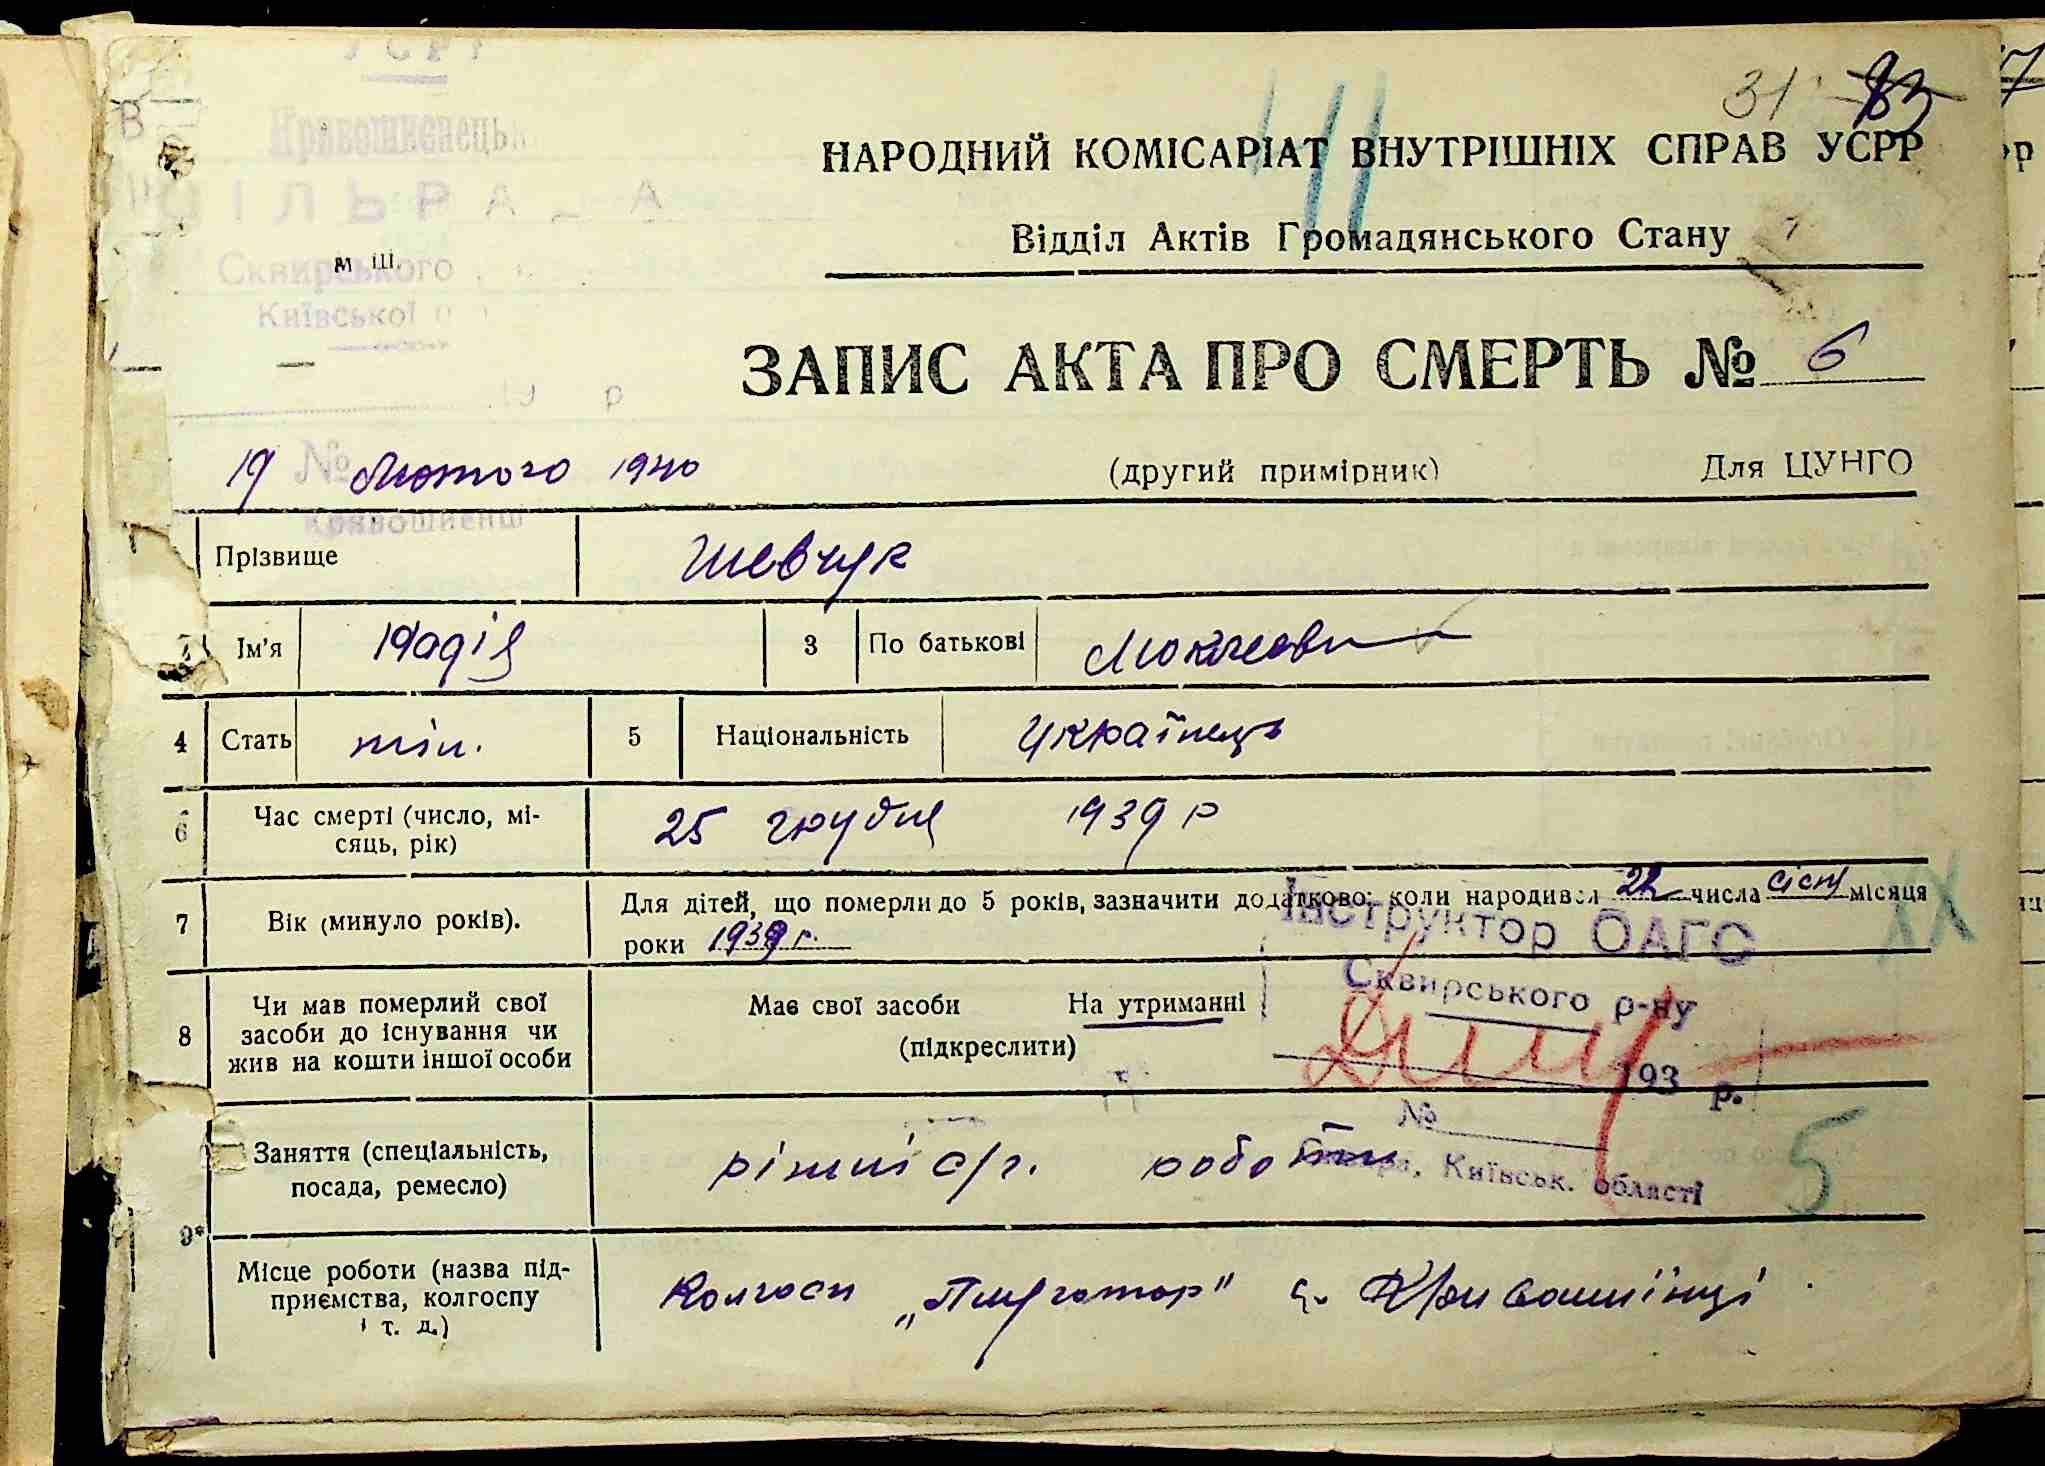 УСРР
31 83
Кривошиєнецьк
СІЛЬРАДА
Сквирського
Київської
НАРОДНИЙ КОМІСАРІАТ ВНУТРІШНІХ СПРАВ УСРР
Відділ Актів Громадянського Стану
ЗАПИС АКТА ПРО СМЕРТЬ № 6
№
19 Лютого 1940 (другий примірник) Для ЦУНГО
Прізвище Шевчук
Ім'я 3 По батькові
4 Стать чол. 5 Національність Українець
6 Час смерті (число, мі-
сяць, рік) 25 грудня 1939 р
7 Вік (минуло років). Для дітей, що померли до 5 років, зазначити додатково: коли народився 22 числа січн місяця
роки 1939 г.
Інструктор ОАГС
Сквирського р-ну
193 р.
№
Київськ. області
8 Чи мав померлий свої
засоби до існування чи
жив на кошти іншої особи
Має свої засоби На утриманні
(підкреслити)
5
9* Заняття (спеціальність,
посада, ремесло) різні с/г. роботи
Місце роботи (назва під-
приємства, колгоспу
і т. д.)
Колгосп с. Кривошиїнці